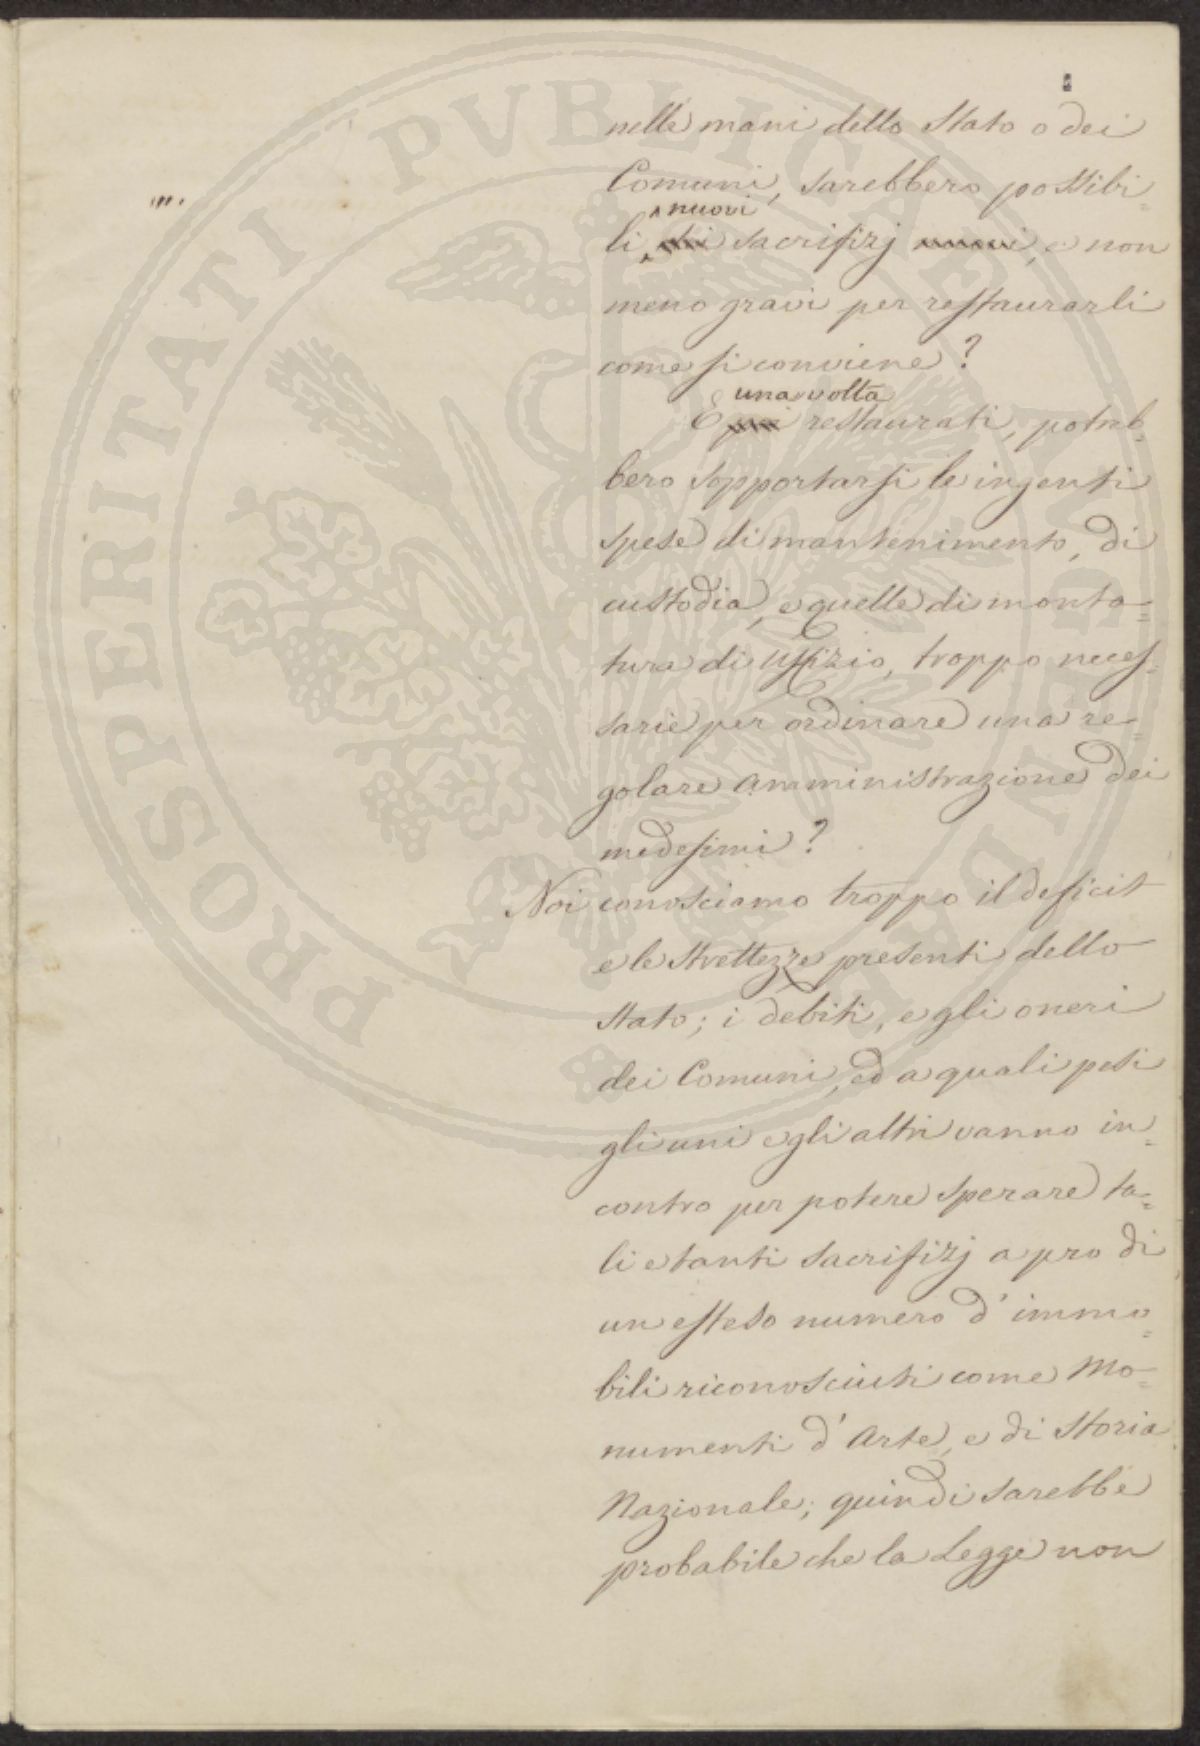 nelle mani dello Stato o dei
Comuni, sarebbero possibi=
nuovi
li, sacrifizj nuovi, e non
meno gravi per restaurarli
come si conviene?
una volta
E poi restaurati, potreb=
bero sopportarsi le ingenti
spese di mantenimento, di
custodia, e quelle di monta=
tura di Uffizio, troppo neces=
sarie per ordinare una re=
golare amministrazione dei
medesimi?
Noi conosciamo troppo il deficit
e le strettezze presenti dello
Stato; i debiti, e gli oneri
dei Comuni, ed a quali pesi
gli uni e gli altri vanno in=
contro per potere sperare ta=
li e tanti sacrifizj a pro di
un esteso numero d'immo=
bili riconosciuti come Mo=
numenti d'Arte, e di Storia
Nazionale; quindi sarebbe
probabile che la Legge non
PROSPERITATI PVBLICAE